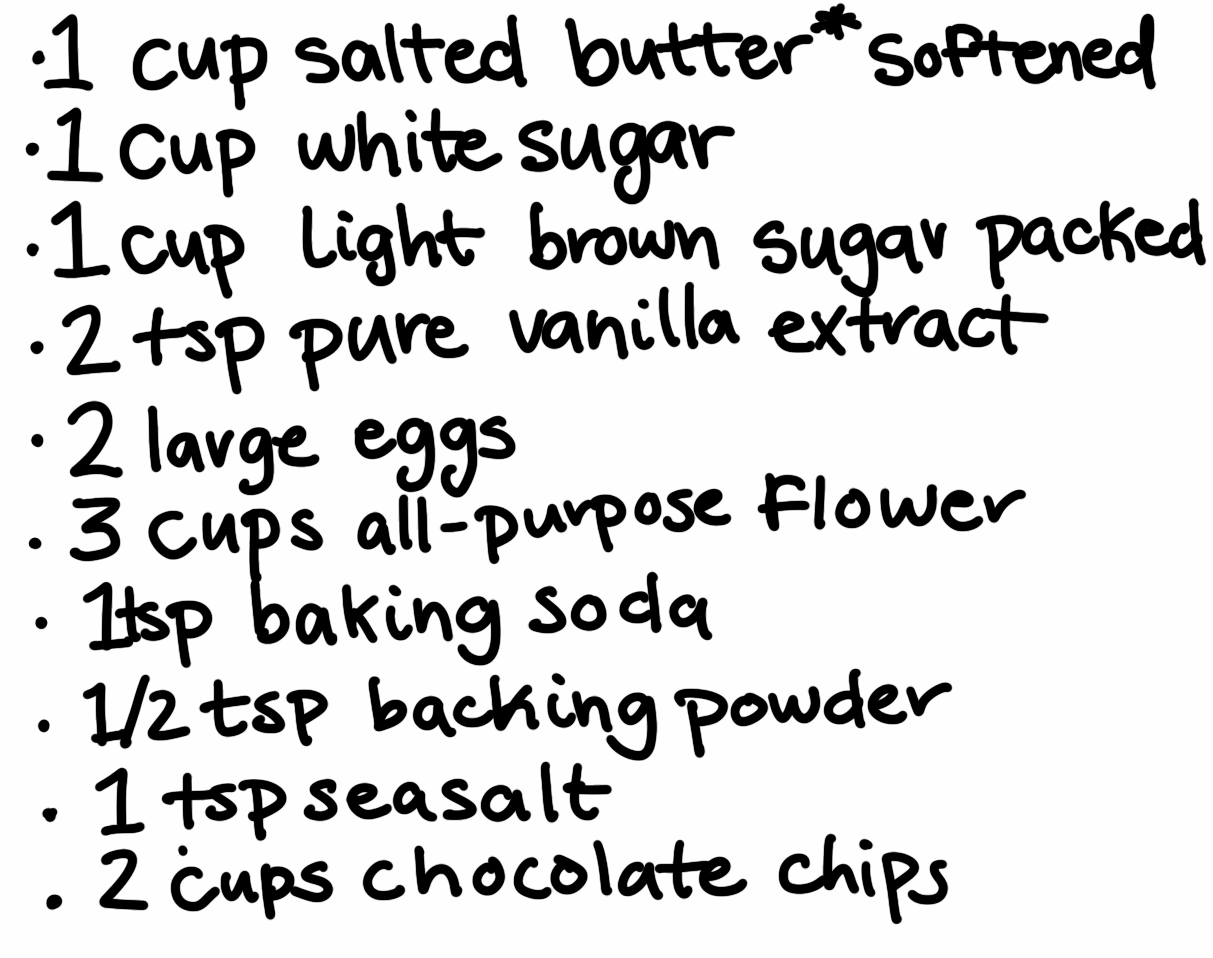 ·1 cup salted butter* softened
·1 cup white sugar
·1 cup light brown sugar packed
·2 tsp pure vanilla extract
·2 large eggs
·3 cups all-purpose flower
·1tsp baking soda
·1/2 tsp backing powder
·1 tsp seasalt
·2 cups chocolate chips